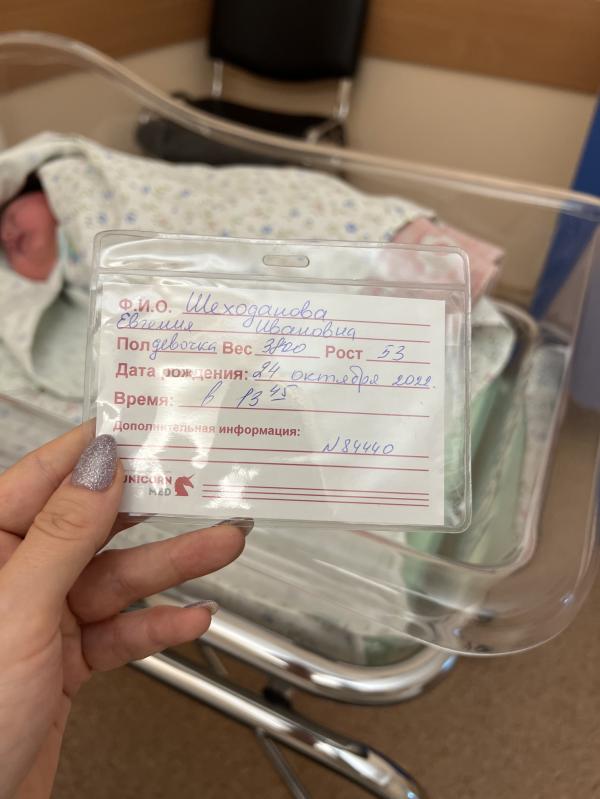 Ф.И.О. Шеходанова
Евгения Ивановна
Пол девочка Вес 3800 Рост 53
Дата рождения: 24 октября 2022.
Время: в 13 45
Дополнительная информация:
N84440
UNICORN
MED